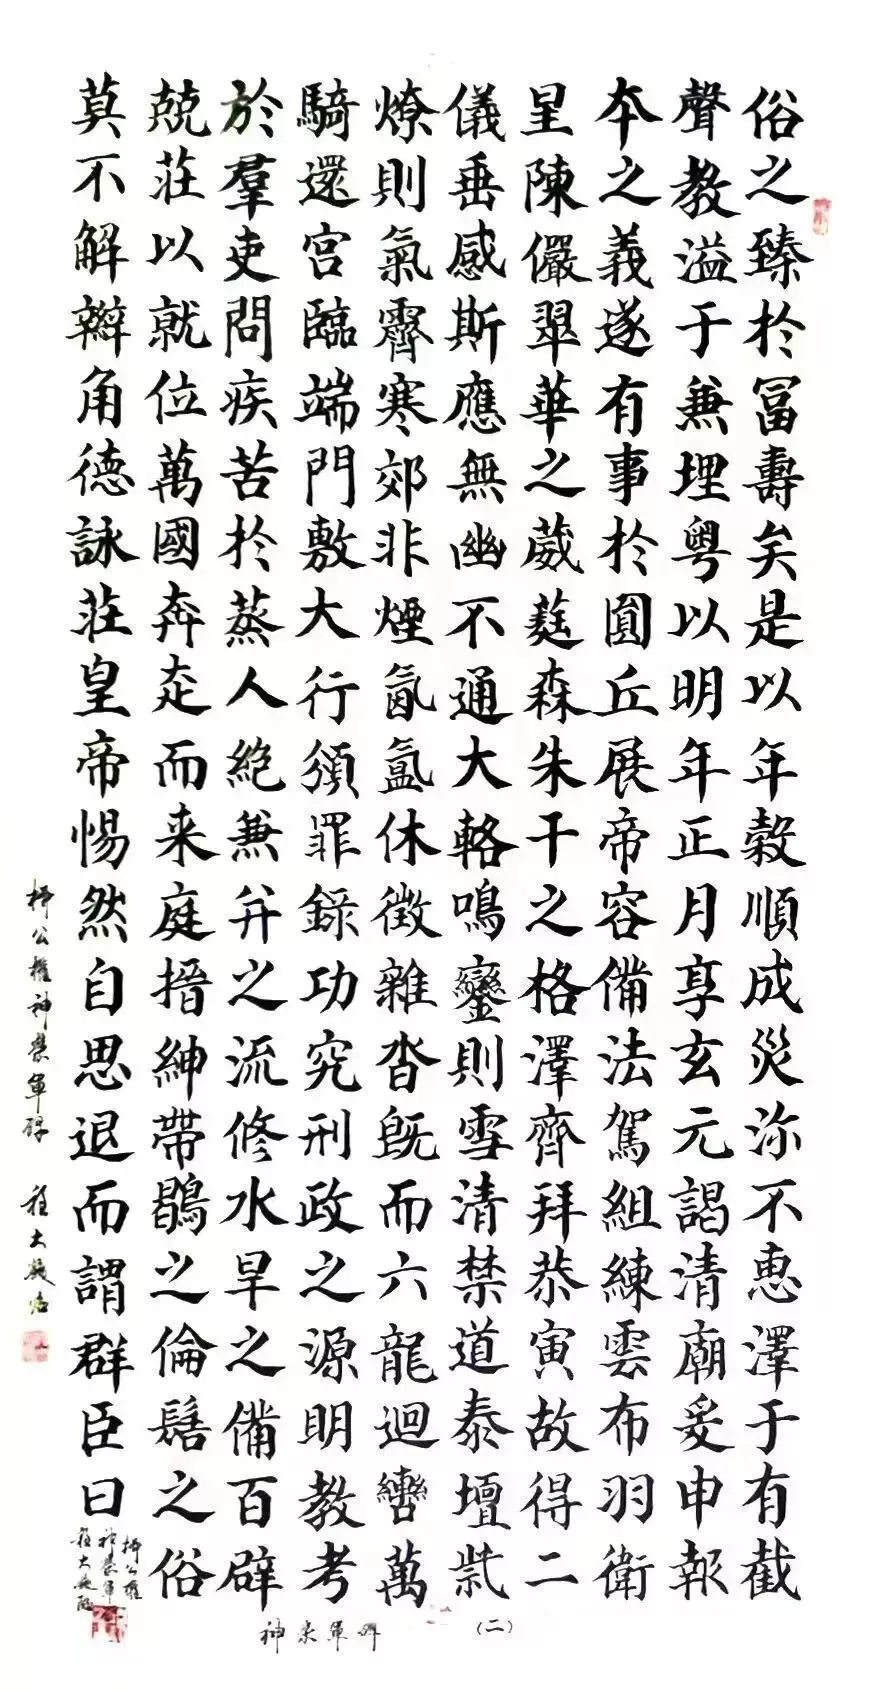 俗之臻於冨壽矣是以年榖順成災沴不作惠澤于有截
聲教溢于無垠粤以明年正月享玄元謁清廟爰申報
本之義遂有事於圓丘展帝容備法駕組練雲布羽衛
星陳儼翠華之葳蕤森朱干之格澤齊拜恭寅故得二
儀垂感斯應無幽不通大輅鳴鑾則雪清禁道泰壇紫
燎則氣霽寒郊非煙氤氳休徵雜沓既而六龍迴轡萬
騎還宮臨端門敷大行頒罪錄功究刑政之源明教考
於羣吏問疾苦於蒸人絕兼并之流修水旱之備百辟
兢莊以就位萬國奔走而来庭搢紳帶鶡之倫髽之俗
莫不解辮角德詠莊皇帝惕然自思退而謂群臣曰
柳公權神策軍碑 程大啟
柳公權
神策軍
程大
神策軍碑 (二)